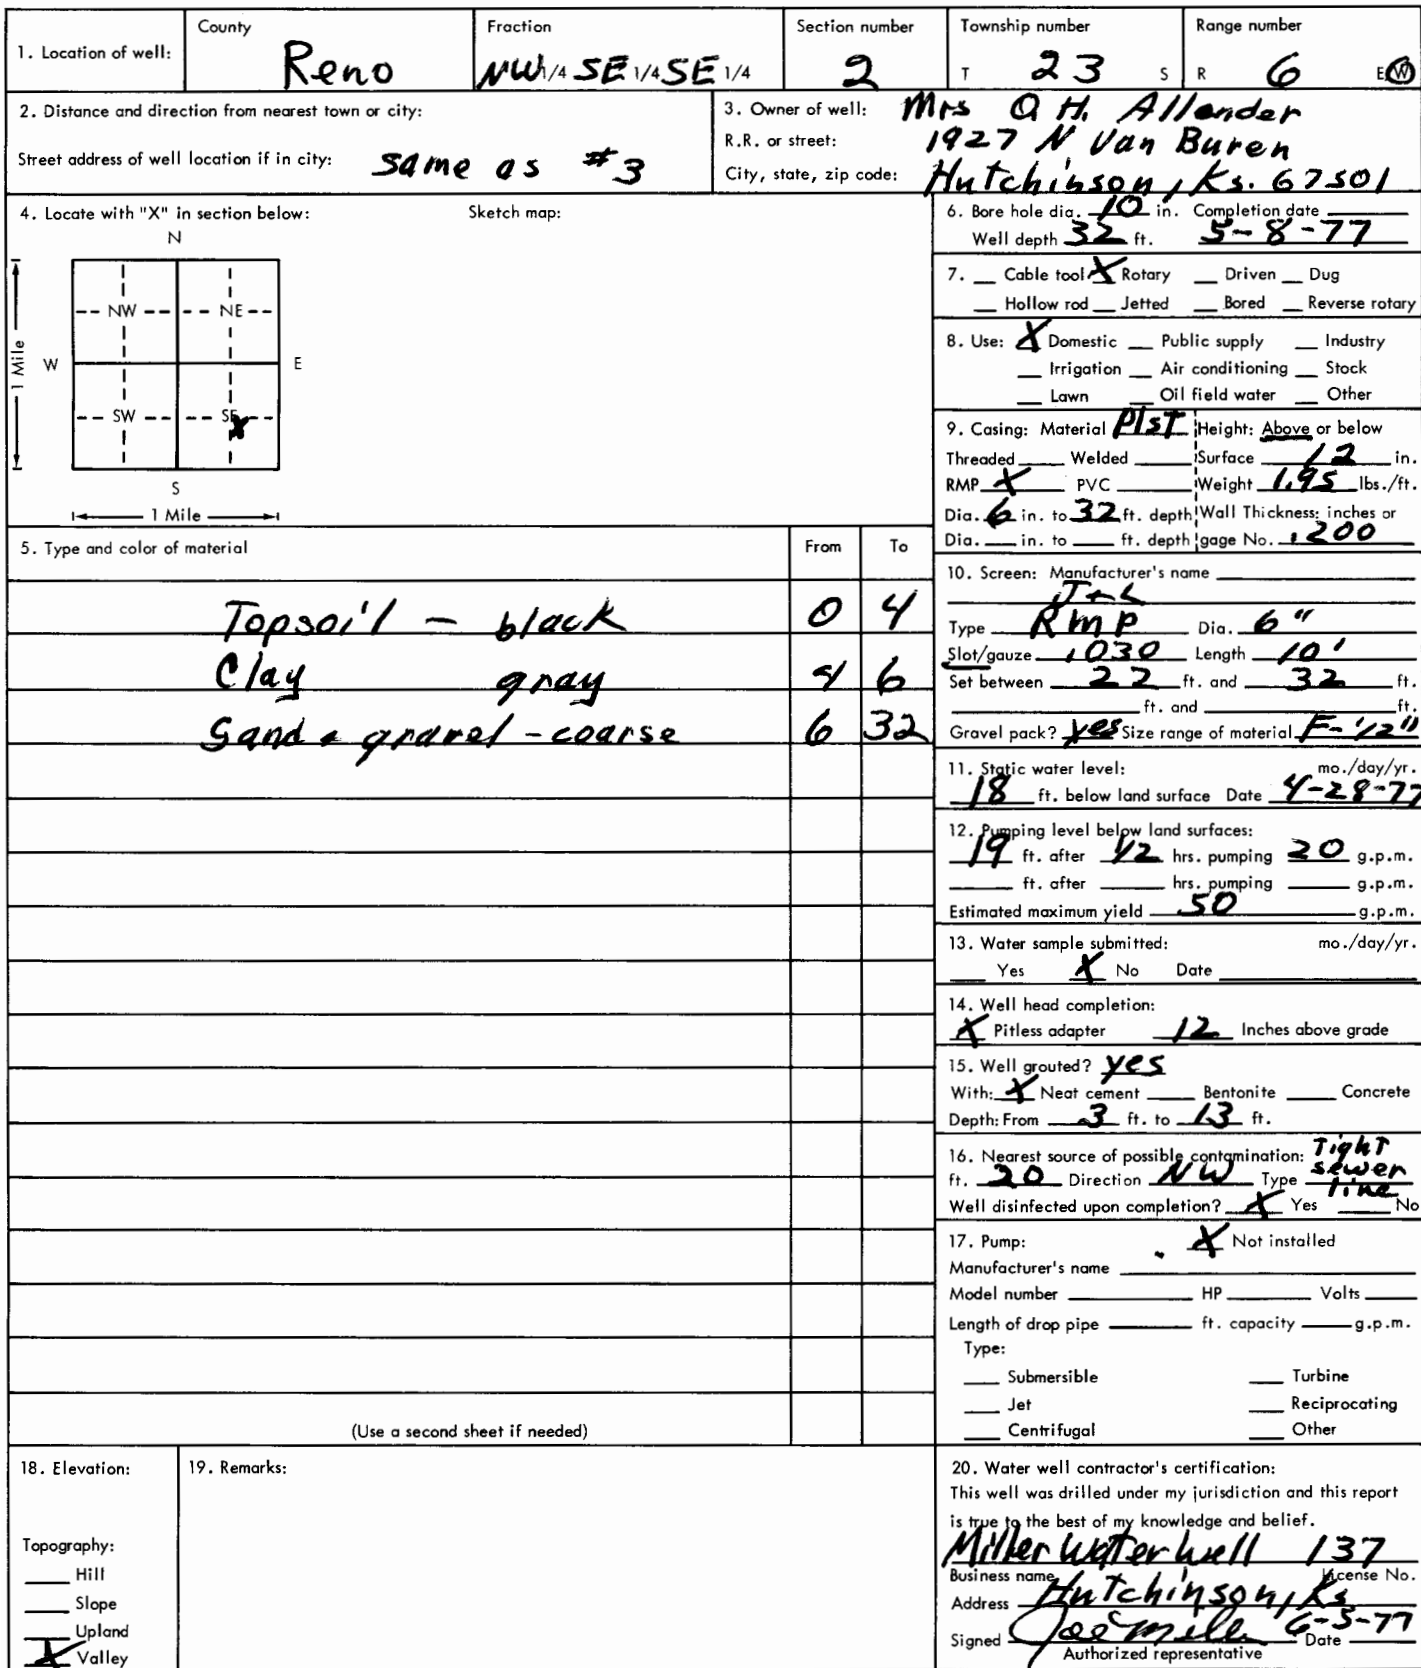 1. Location of well: County Reno Fraction NW 1/4 SE 1/4 SE 1/4 Section number 2 Township number T 23 S Range number R 6 E W
2. Distance and direction from nearest town or city:
Street address of well location if in city: same as #3
3. Owner of well: Mrs O H. Allender
R.R. or street: 1927 N Van Buren
City, state, zip code: Hutchinson, Ks. 67501
4. Locate with "X" in section below: Sketch map:
N
NW NE
W E
1 Mile
SW SE X
S
1 Mile
5. Type and color of material From To
Topsoil - black 0 4
Clay gray 4 6
Sand & gravel - coarse 6 32
(Use a second sheet if needed)
6. Bore hole dia. 10 in. Completion date
Well depth 32 ft. 5-8-77
7. Cable tool X Rotary Driven Dug
Hollow rod Jetted Bored Reverse rotary
8. Use: X Domestic Public supply Industry
Irrigation Air conditioning Stock
Lawn Oil field water Other
9. Casing: Material Plst Height: Above or below
Threaded Welded Surface 12 in.
RMP X PVC Weight 1.95 lbs./ft.
Dia. 6 in. to 32 ft. depth Wall Thickness: inches or
Dia. in. to ft. depth gage No. .200
10. Screen: Manufacturer's name
J+L
Type RMP Dia. 6"
Slot/gauze .030 Length 10'
Set between 22 ft. and 32 ft.
ft. and ft.
Gravel pack? yes Size range of material F-1/2"
11. Static water level: mo./day/yr.
18 ft. below land surface Date 4-28-77
12. Pumping level below land surfaces:
19 ft. after 1/2 hrs. pumping 20 g.p.m.
ft. after hrs. pumping g.p.m.
Estimated maximum yield 50 g.p.m.
13. Water sample submitted: mo./day/yr.
Yes X No Date
14. Well head completion:
X Pitless adapter 12 Inches above grade
15. Well grouted? yes
With: X Neat cement Bentonite Concrete
Depth: From 3 ft. to 13 ft.
16. Nearest source of possible contamination: Tight
ft. 20 Direction NW Type sewer
line
Well disinfected upon completion? X Yes No
17. Pump: X Not installed
Manufacturer's name
Model number HP Volts
Length of drop pipe ft. capacity g.p.m.
Type:
Submersible Turbine
Jet Reciprocating
Centrifugal Other
18. Elevation:
Topography:
Hill
Slope
Upland
X Valley
19. Remarks:
20. Water well contractor's certification:
This well was drilled under my jurisdiction and this report
is true to the best of my knowledge and belief.
Miller Water Well 137
Business name License No.
Address Hutchinson, Ks
Signed Joe Miller Date 6-3-77
Authorized representative